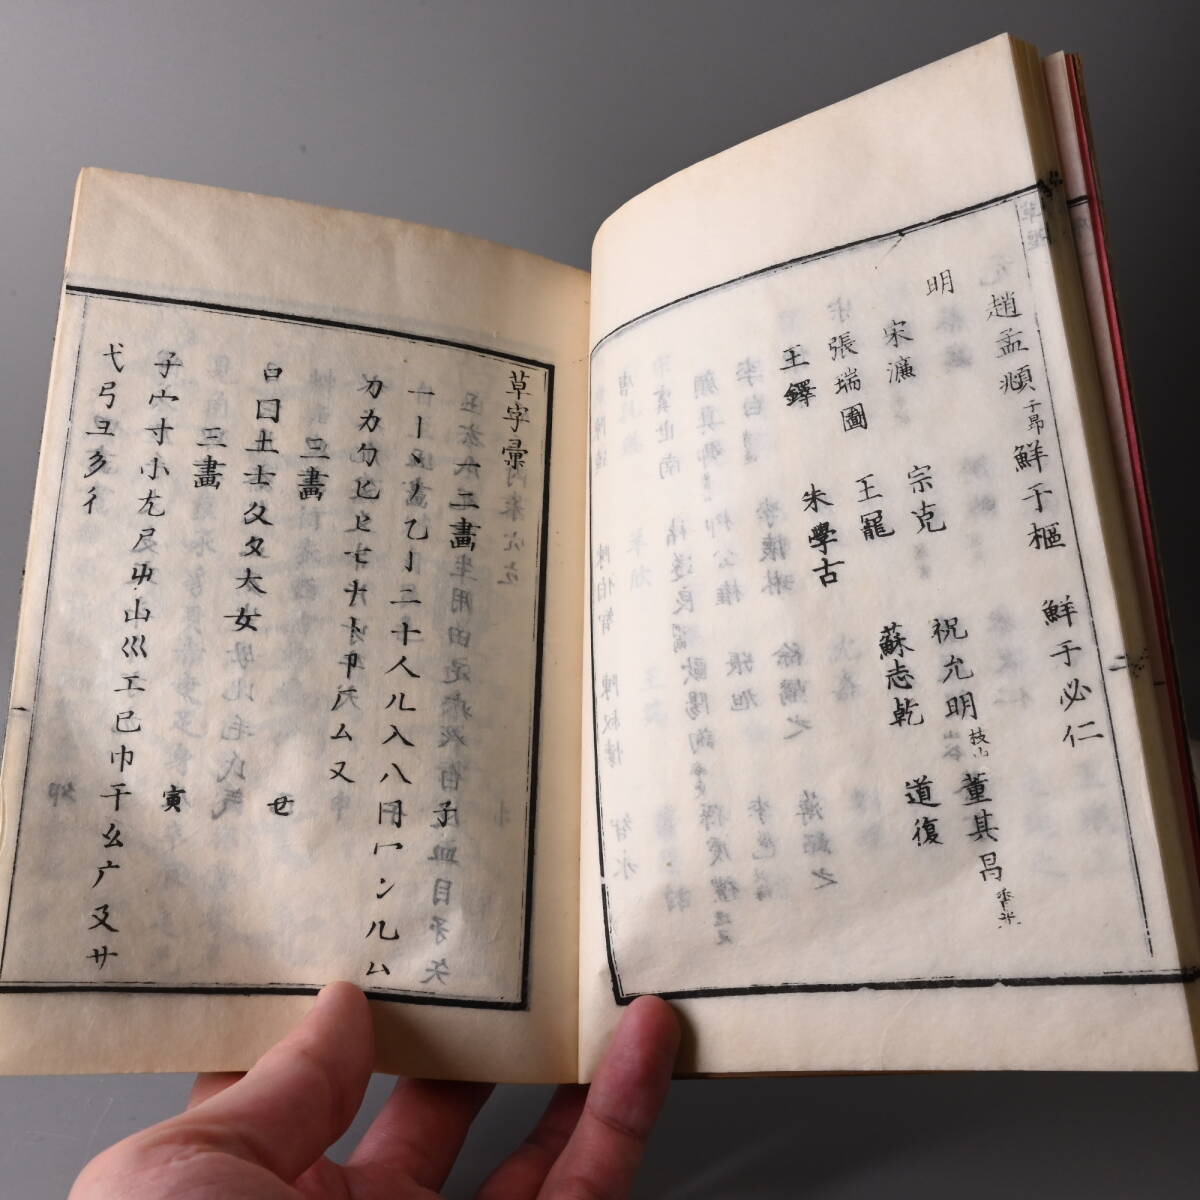 趙孟頫子昂 鮮于樞 鮮于必仁
明
宋濂 宗克 祝允明枝山 董其昌香光
張瑞圖 王寵 蘇志乾 道復
王鐸 朱學古
草字彙
二畫 子
一丨丶丿乙亅二十人儿入八冂冖冫几凵
刀力勹匕匚匸十卜卩厂厶又
三畫
口囗土士夂夊大女 丑
三畫
子宀寸小尢尸屮山巛工己巾干幺广廴廾 寅
弋弓彐彡彳